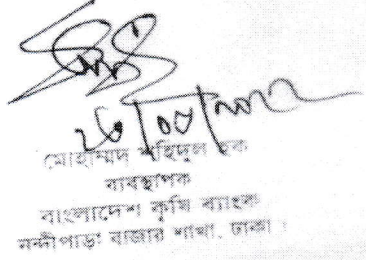 মোহাম্মদ শহিদুল হক
ব্যবস্থাপক
বাংলাদেশ কৃষি ব্যাংক
নন্দীপাড়া বাজার শাখা, ঢাকা ।